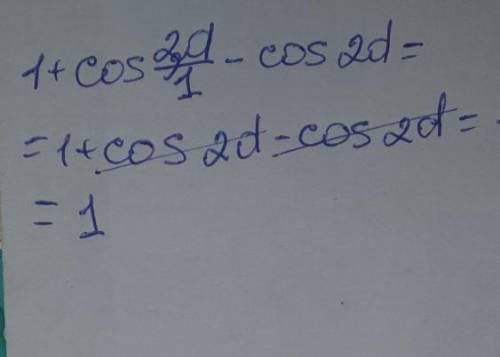 1+cos 2d/1 - cos 2d=
=1+cos 2d-cos 2d=
=1